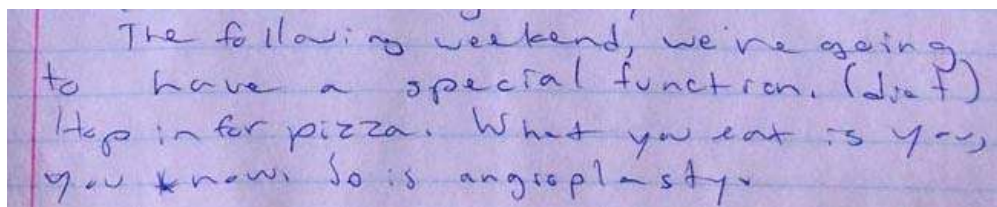 The following weekend, we're going
to have a special function. (diet)
Hop in for pizza. What you eat is you,
you know. So is angioplasty.